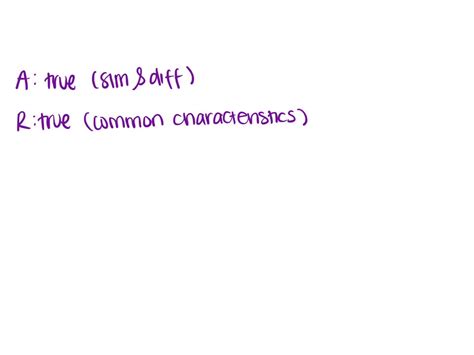 A: true (sim & diff)
R: true (common characteristics)